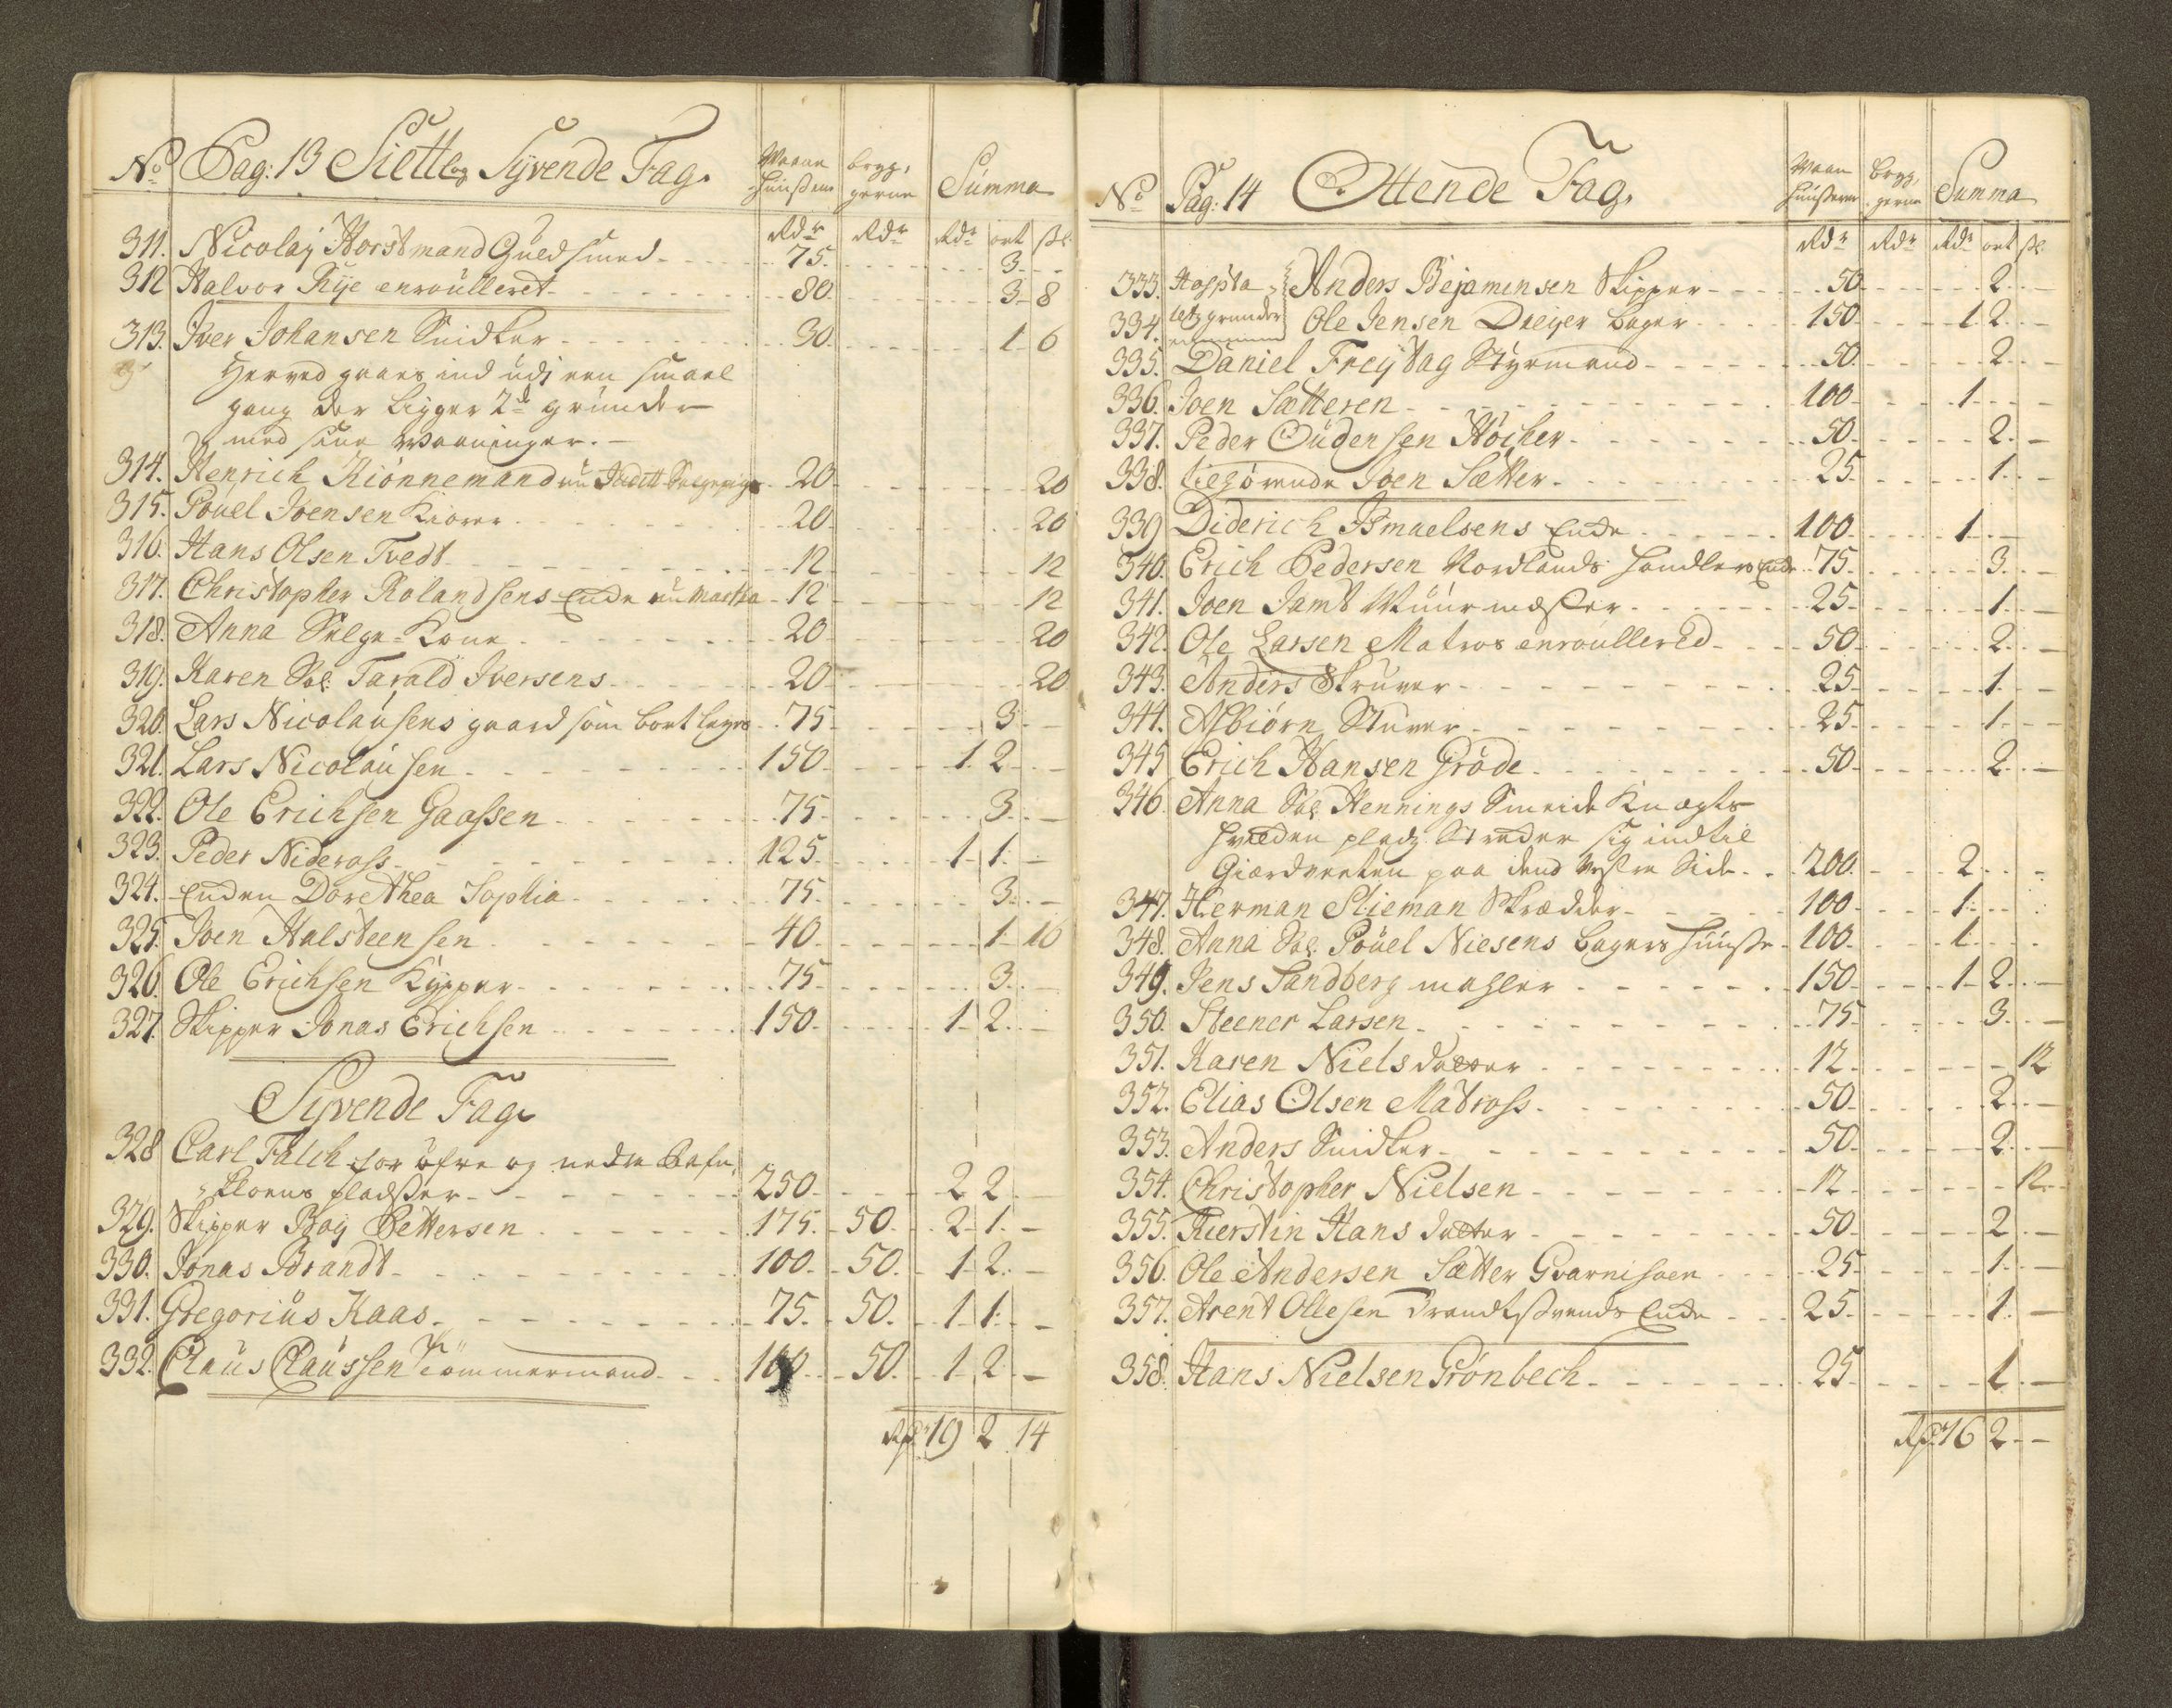 No Pag: 13 Siette og Syvende Fag. Waane huußene brygg, gerne Summa
Rdr Rdr Rdr ort ßl
311. Nicolaÿ Horstmand Guldsmed 75. 3
312 Halvor Rÿe enroulleret 80. 3 8
313. Iver Johansen Snidker 30. 1 6
Herved gaaes ind udj een smael
gang der ligger 2de grunder
med sine Waaninger.
314. Henrich Kiönnemand nu Selgepige 20 20
315. Pouel Joensen 20 20
316. Hans Olsen Tvedt 12 12
317. Christopher Rolandsens Enche nu Martha 12 12
318. Anna Selge-Kone 20 20
319. Karen Sal: Tarald Iversens 20 20
320. Lars Nicolausens gaard som bortleyes 75 3
321. Lars Nicolausen 150 1 2
322. Ole Erichsen Gaassen 75 3
323. Peder Nideross 125 1 1
324. Enchen Dorethea Sophia 75 3
325. Joen Halsteensen 40 1 16
326. Ole Erichsen Kÿpper 75 3
327. Skipper Jonas Erichsen 150 1 2
Syvende Fag
328 Carl Falch for öfre og nedre
pladßer 250 2 2
329. Skipper Boy Pettersen 175 50 2 1
330. Jonas Brandt 100 50 1 2
331. Gregorius Kaas 75 50 1 1
332. Claus Claussen Tömmermand 100 50 1 2
Rdr 19 2 14
No Pag: 14 Ottende Fag. Waan huußerne brÿg, gerne Summa
Rdr Rdr Rdr ort ßl
333. Hospita Anders Bejamensen Skipper 50 2
334. letz grunder Ole Jensen Dreyer bager 150 1 2
335. Daniel Freÿtag Stÿrmand 50 2
336. Joen Sætteren 100 1
337. Peder Oudensen Höcher 50 2
338. tilhörende Joen Sætter 25 1
339 Diderich Ismaelsens Enche 100 1
340. Erich Pedersen Nordlands handlers Enche 75 3
341. Joen Jamt Muurmæster 25 1
342. Ole Larsen Matros enroullered 50 2
343. Anders Struver 25 1
344. Asbiörn Stuver 25 1
345 Erich Hansen Gröde 50 2
346. Anna Sal: Hennings Smeide Knægts
hvilden pladz Strecker sig indtil
Giærdveeten paa dend Vestre Side 200 2
347. Herman Slieman Skrædder 100 1
348. Anna Sal: Pouel Niesens bagers huuße 100 1
349. Jens Sandberg mahler 150 1 2
350. Steener Larsen 75 3
351. Karen Nielsdatter 12 12
352. Elias Olsen Matross 50 2
353. Anders Snidker 50 2
354. Christopher Nielsen 12 12
355. Kierstin Hans datter 50 2
356. Ole Andersen Sætter Gvarnisoen 25 1
357. Arent Ollesen Enche 25 1
358. Hans Nielsen Grönbech 25 1
Rdr 16 2